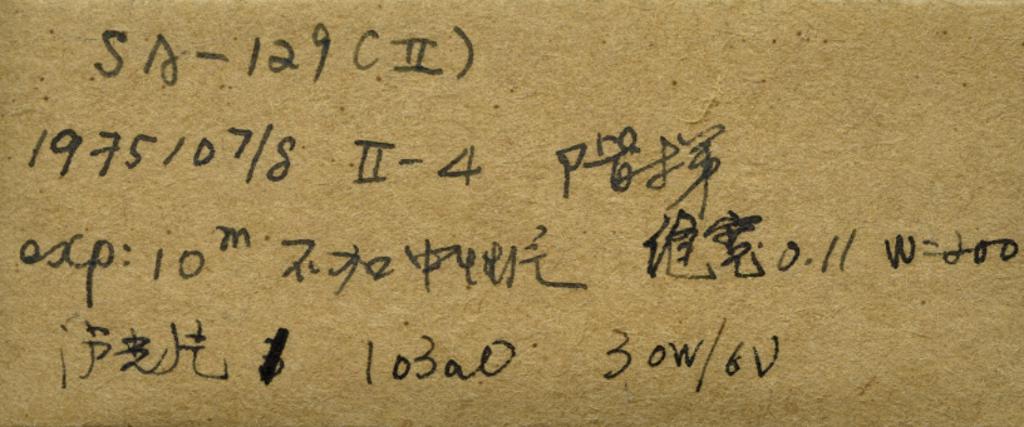 SA-129(II)
1975107/8 II-4 阶梯
exp: 10m 不加中性 缝宽 0.11 W=200
沪光片 103aO 30W/6V